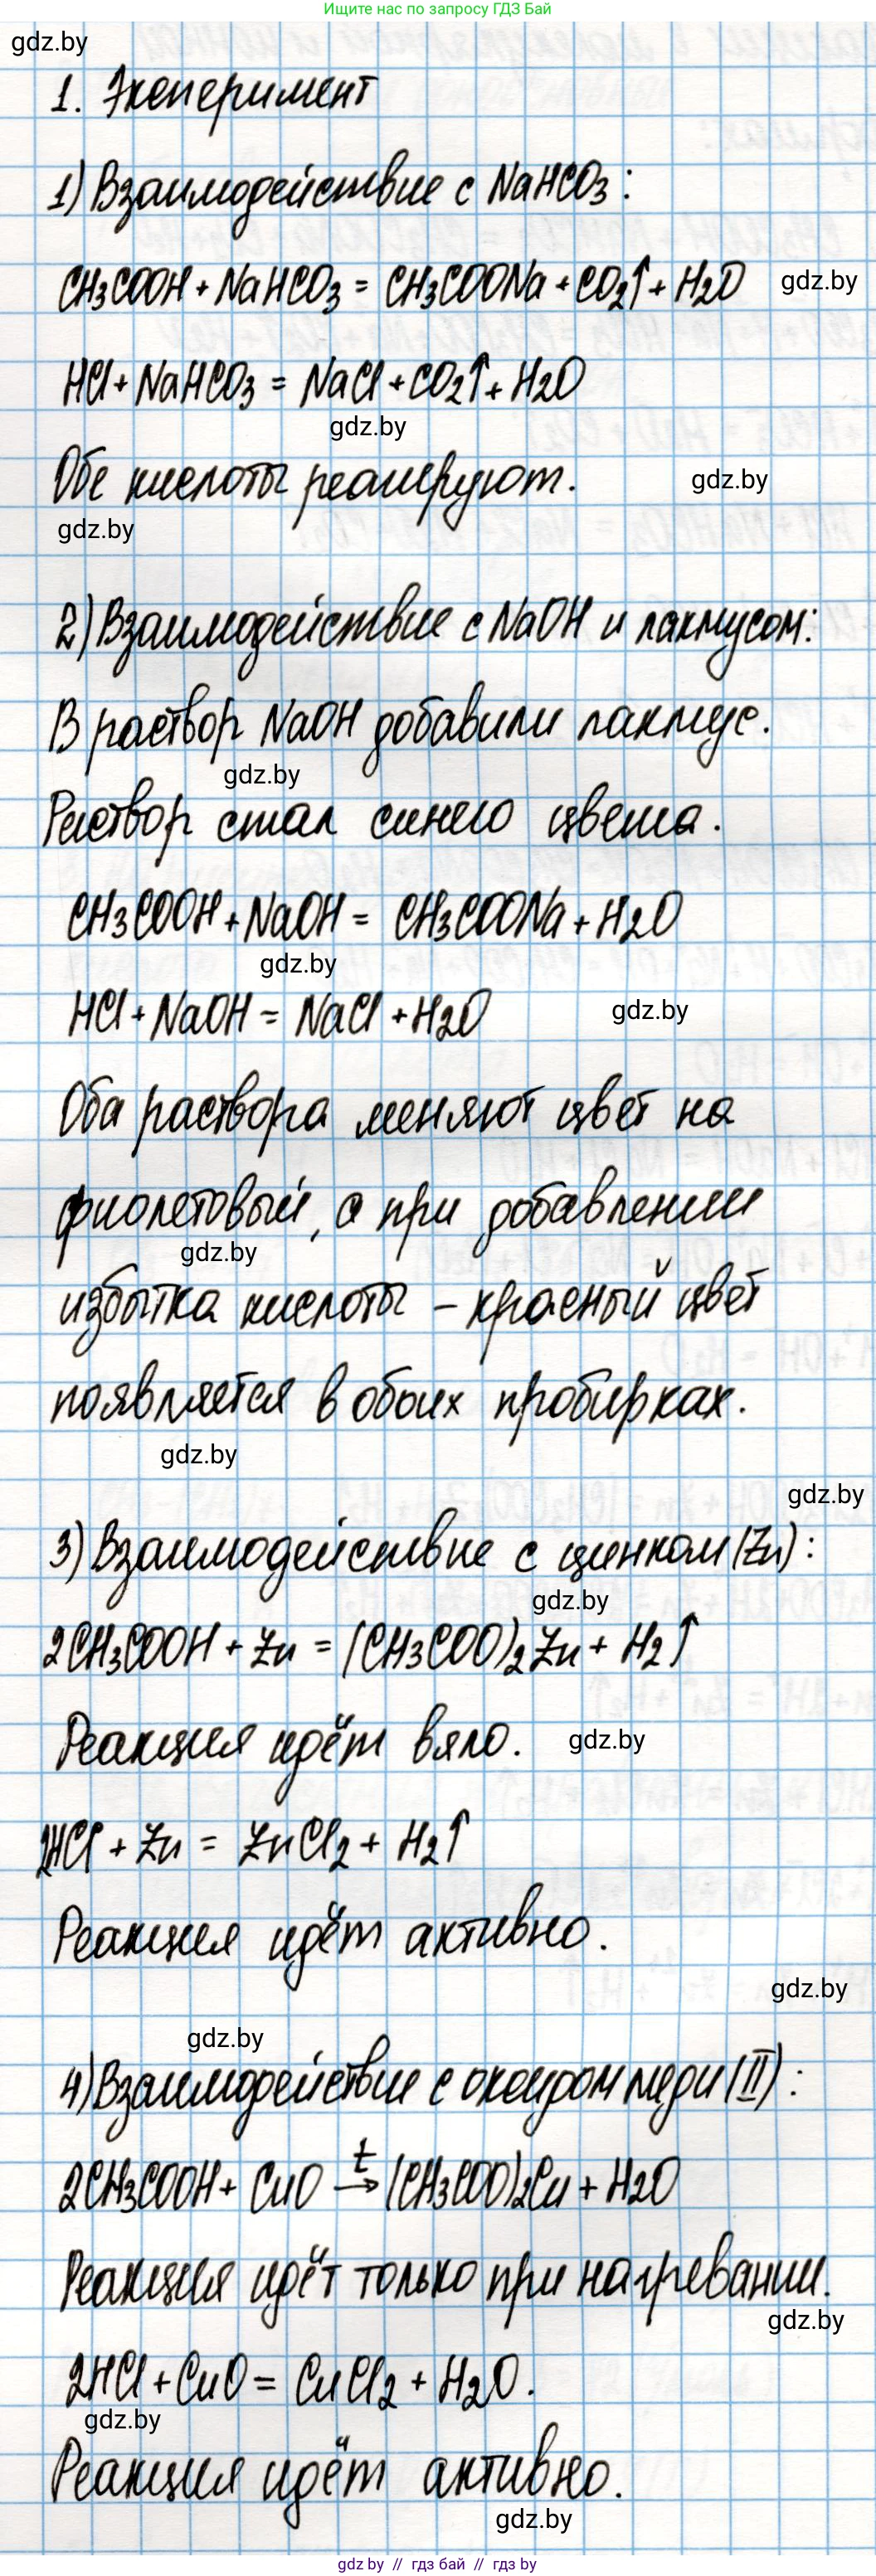 Ищите нас по запросу ГДЗ Бай
gdz.by
1. Эксперимент
1) Взаимодействие с NaHCO3:
CH3COOH + NaHCO3 = CH3COONa + CO2↑ + H2O
gdz.by
HCl + NaHCO3 = NaCl + CO2↑ + H2O
gdz.by
Обе кислоты реагируют.
gdz.by
gdz.by
2) Взаимодействие с NaOH и лакмусом:
В раствор NaOH добавили лакмус.
gdz.by
Раствор стал синего цвета.
CH3COOH + NaOH = CH3COONa + H2O
gdz.by
HCl + NaOH = NaCl + H2O
gdz.by
Оба раствора меняют цвет на
фиолетовый, а при добавлении
gdz.by
избытка кислоты – красный цвет
появляется в обоих пробирках.
gdz.by
gdz.by
3) Взаимодействие с цинком (Zn):
gdz.by
2CH3COOH + Zn = (CH3COO)2Zn + H2↑
Реакция идёт вяло.
gdz.by
2HCl + Zn = ZnCl2 + H2↑
Реакция идёт активно.
gdz.by
gdz.by
4) Взаимодействие с оксидом меди (II):
2CH3COOH + CuO —t→ (CH3COO)2Cu + H2O
Реакция идёт только при нагревании.
gdz.by
2HCl + CuO = CuCl2 + H2O.
gdz.by
Реакция идёт активно.
gdz.by
gdz by // гдз бай // gdz by